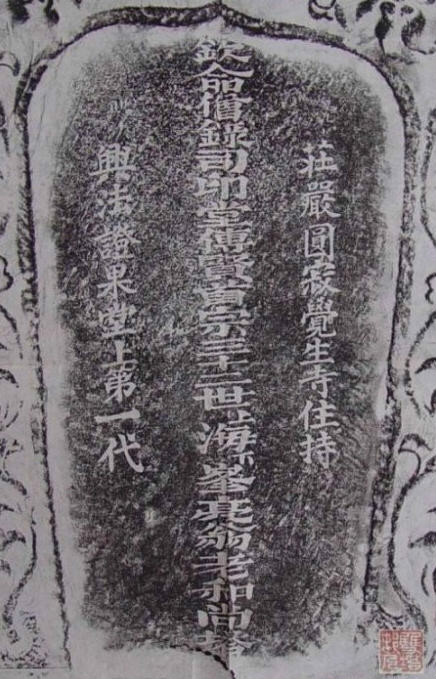 莊嚴圓寂覺生寺住持
欽命僧錄司印堂傳賢首宗三十二世上海下峯翁老和尚塔
興法證果堂上第一代